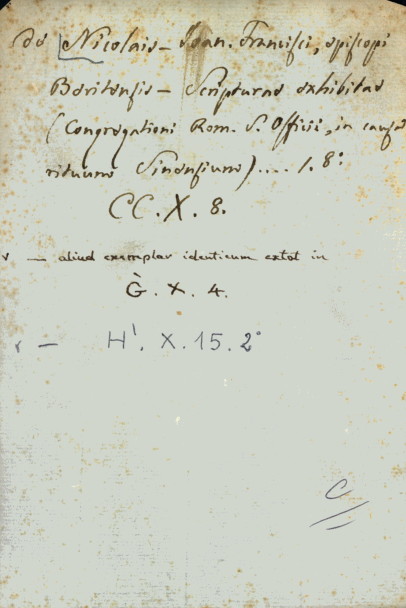 de Nicolais – Joan. Francisci, episcopi
Beritensis – Scripturae exhibitae
(Congregationi Rom. S. Officii, in causa
rituum Sinensium).... 1. 8°
CC. X. 8.
v — aliud exemplar identicum extat in
G. X. 4.
v — H'. X. 15. 2°
C